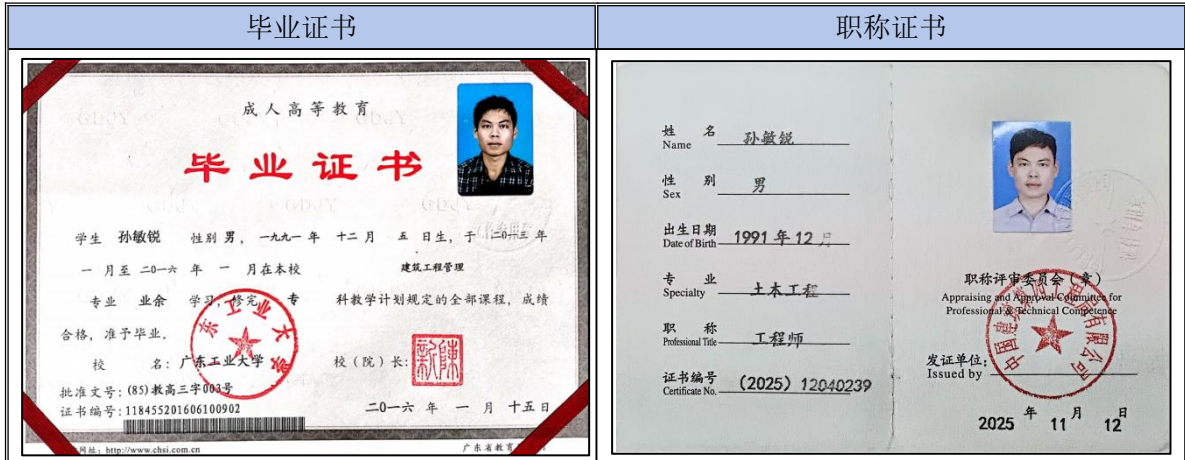 毕业证书
职称证书
成人高等教育
毕业证书
学生 孙敏锐 性别 男， 一九九一 年 十二 月 五 日生，于 二〇一三 年
一 月至 二〇一六 年 一 月在本校 建筑工程管理
专业 业余 学习，修完 专 科教学计划规定的全部课程，成绩
合格，准予毕业。
校 名：广东工业大学 校（院）长：
批准文号：(85)教高三字003号
证书编号：118455201606100902
二〇一六 年 一 月 十五 日
网址：http://www.chsi.com.cn
广东省教育
姓 名 孙敏锐
Name
性 别 男
Sex
出生日期 1991 年 12 月
Date of Birth
专 业 土木工程
Specialty
职 称 工程师
Professional Title
证书编号 (2025) 12040239
Certificate No.
职称评审委员会（章）
Appraising and Approval Committee for
Professional & Technical Competence
发证单位：
Issued by
2025 年 11 月 12 日